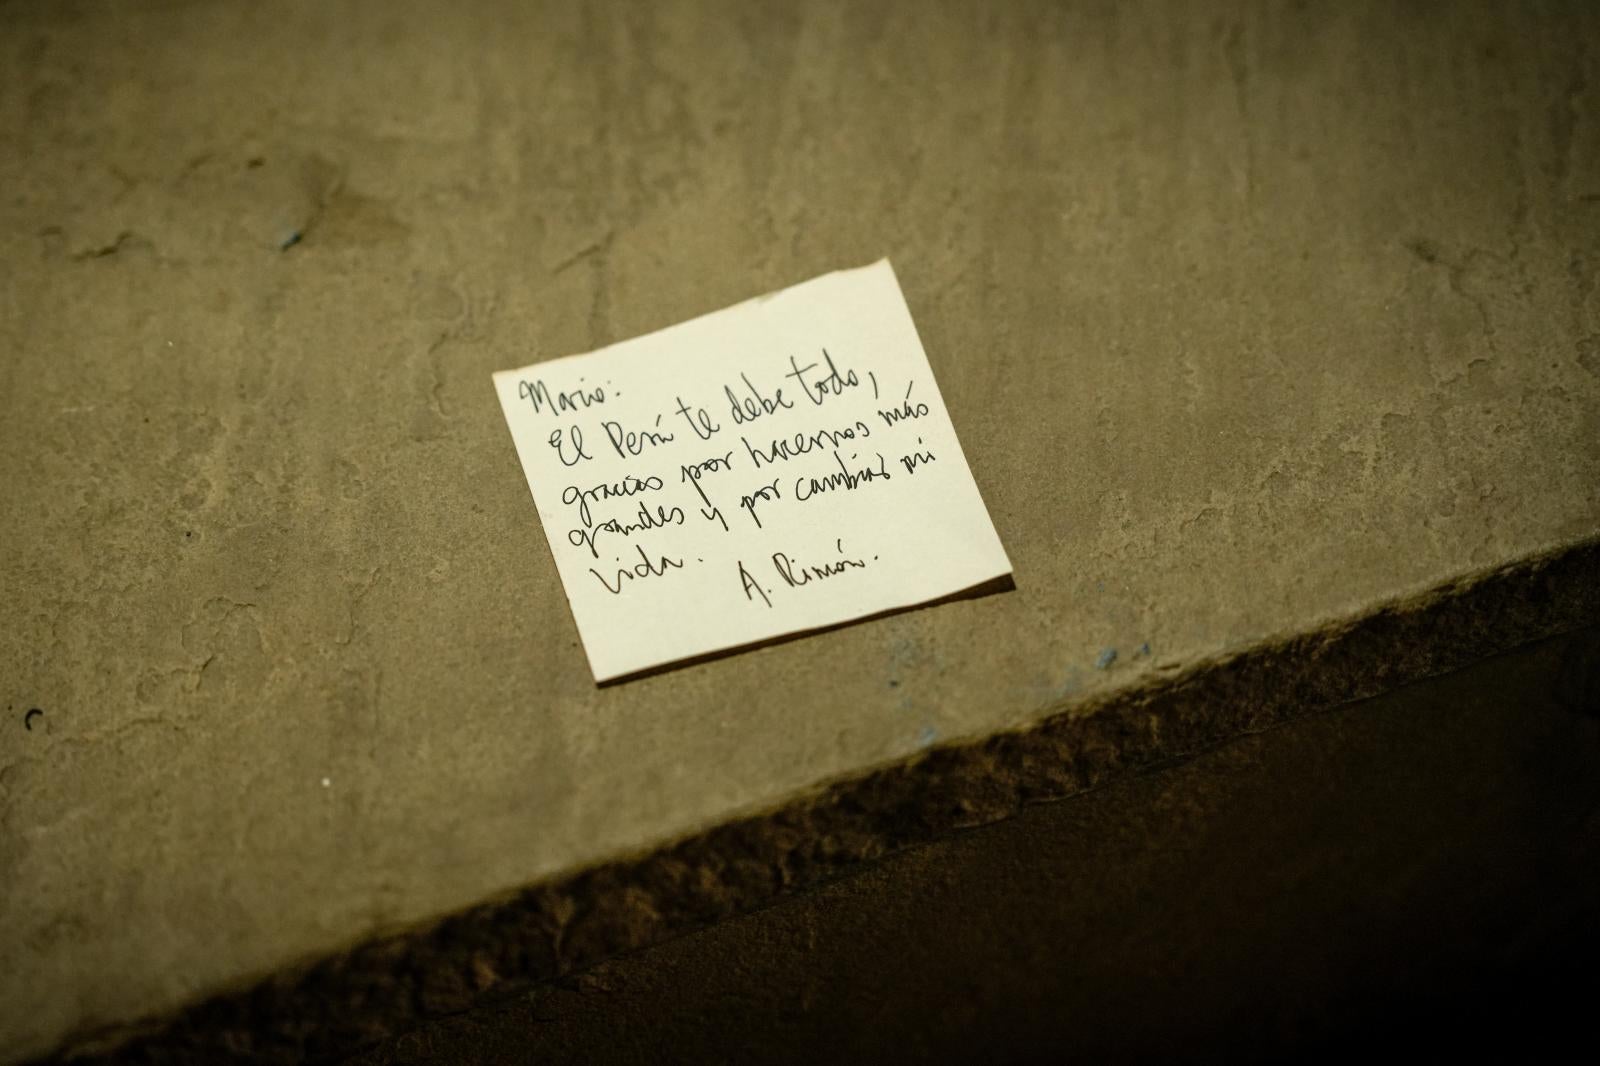 Mario:
El Perú te debe todo,
gracias por hacernos más
grandes y por cambiar mi
vida.
A. Rimón.